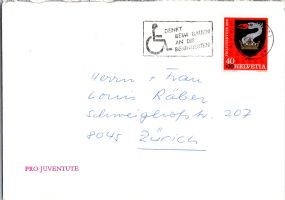 DENKT
BEIM BAUEN
AN DIE
BEHINDERTEN
40
HELVETIA
Herrn + Frau
Louis Räber
Schweighofstr. 207
8045 Zürich
PRO JUVENTUTE